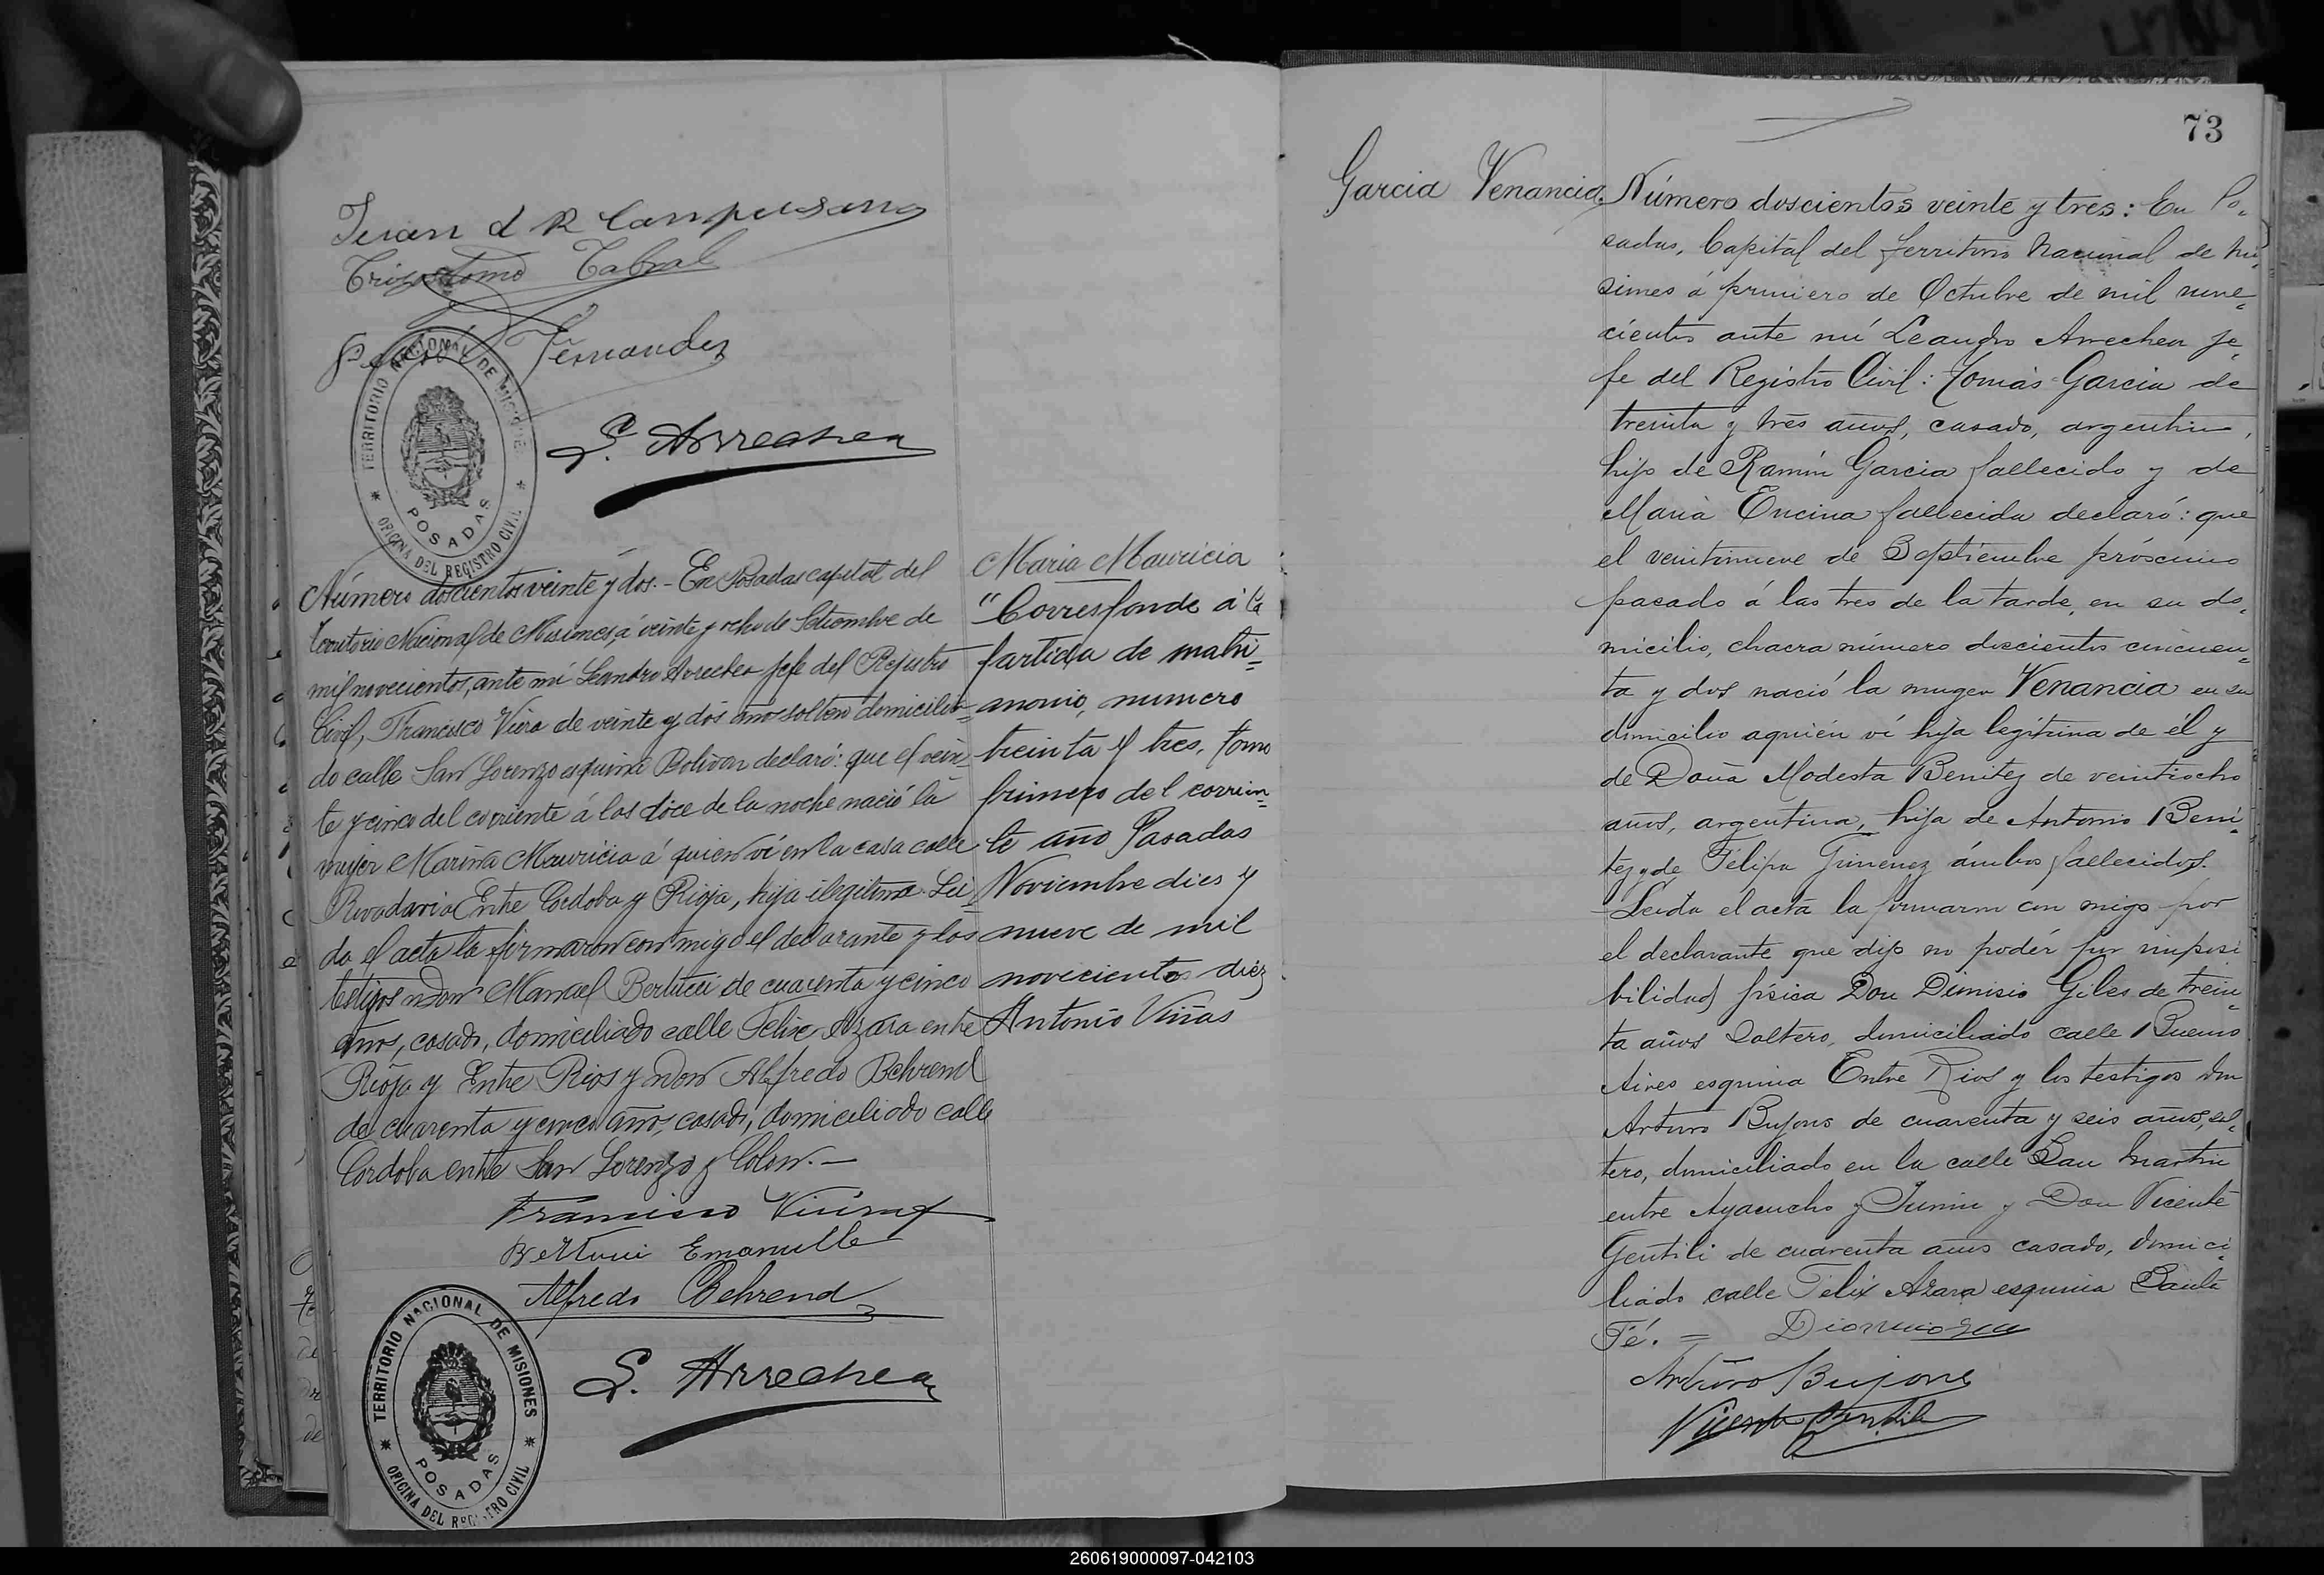 Juan d R Campusano
Crisostomo Cabral
Fernandez
TERRITORIO NACIONAL DE MISIONES
POSADAS
OFICINA DEL REGISTRO CIVIL
L. Arrechea
Número doscientos veinte y dos.- En Posadas capital del
Territorio Nacional de Misiones, á veinte y ocho de Setiembre de
mil novecientos, ante mí Leandro Arrechea Jefe del Rejistro
Civil, Francisco Viera de veinte y dós años soltero domicilia-
do calle San Lorenzo esquina Bolivar declaró: que el vein-
te y cinco del corriente á las doce de la noche nació la
mujer Maria Mauricia á quien ví en la casa calle
Rivadavia Entre Cordoba y Rioja, hija ilegitima. Lei-
da el acta la firmaron conmigo el declarante y los
testigos Don Manuel Bertucci de cuarenta y cinco
años, casado, domiciliado calle Felix Azara entre
Rioja y Entre Rios y Don Alfredo Behrend
de cuarenta y cinco años, casado, domiciliado calle
Cordoba entre San Lorenzo y Colon.-
Francisco
Emanuelle
Alfredo Behrend
L. Arrechea
TERRITORIO NACIONAL DE MISIONES
POSADAS
OFICINA DEL REGISTRO CIVIL
Maria Mauricia
"Corresponde á la
partida de matri=
monio, numero
treinta y tres, tomo
primero del corrien=
te año Posadas
Noviembre dies y
nueve de mil
novecientos diez
Antonio Viñas
73
Garcia Venancia.
Número doscientos veinte y tres: En Po-
sadas, Capital del Territorio Nacional de Mi-
siones á primero de Octubre de mil nove=
cientos ante mí Leandro Arrechea Je-
fe del Registro Civil: Tomás Garcia de
treinta y tres años, casado, argentino,
hijo de Ramón Garcia fallecido y de
Maria Encina fallecida declaró: que
el veintinueve de Septiembre prócsimo
pasado á las tres de la tarde, en su do-
micilio, chacra número doscientos cincuen=
ta y dos nació la muger Venancia en su
domicilio aquién ví hija legítima de él y
de Doña Modesta Benitez de veintiocho
años, argentina, hija de Antonio Beni-
tez y de Felipa Gimenez ámbos fallecidos.
Leida el acta la firmaron con migo por
el declarante que dijo no podér por imposi
bilidad física Don Dionisio Giles de trein=
ta años soltero, domiciliado calle Buenos
Aires esquina Entre Rios y los testigos don
Arturo Bujons de cuarenta y seis años, sol-
tero, domiciliado en la calle San Martin
entre Ayacucho y Junin y Don Vicente
Gentili de cuarenta años casado, domici
liado calle Felix Azara esquina Santa
Fé. =
Arturo Bujons
Vicente Gentili
260619000097-042103